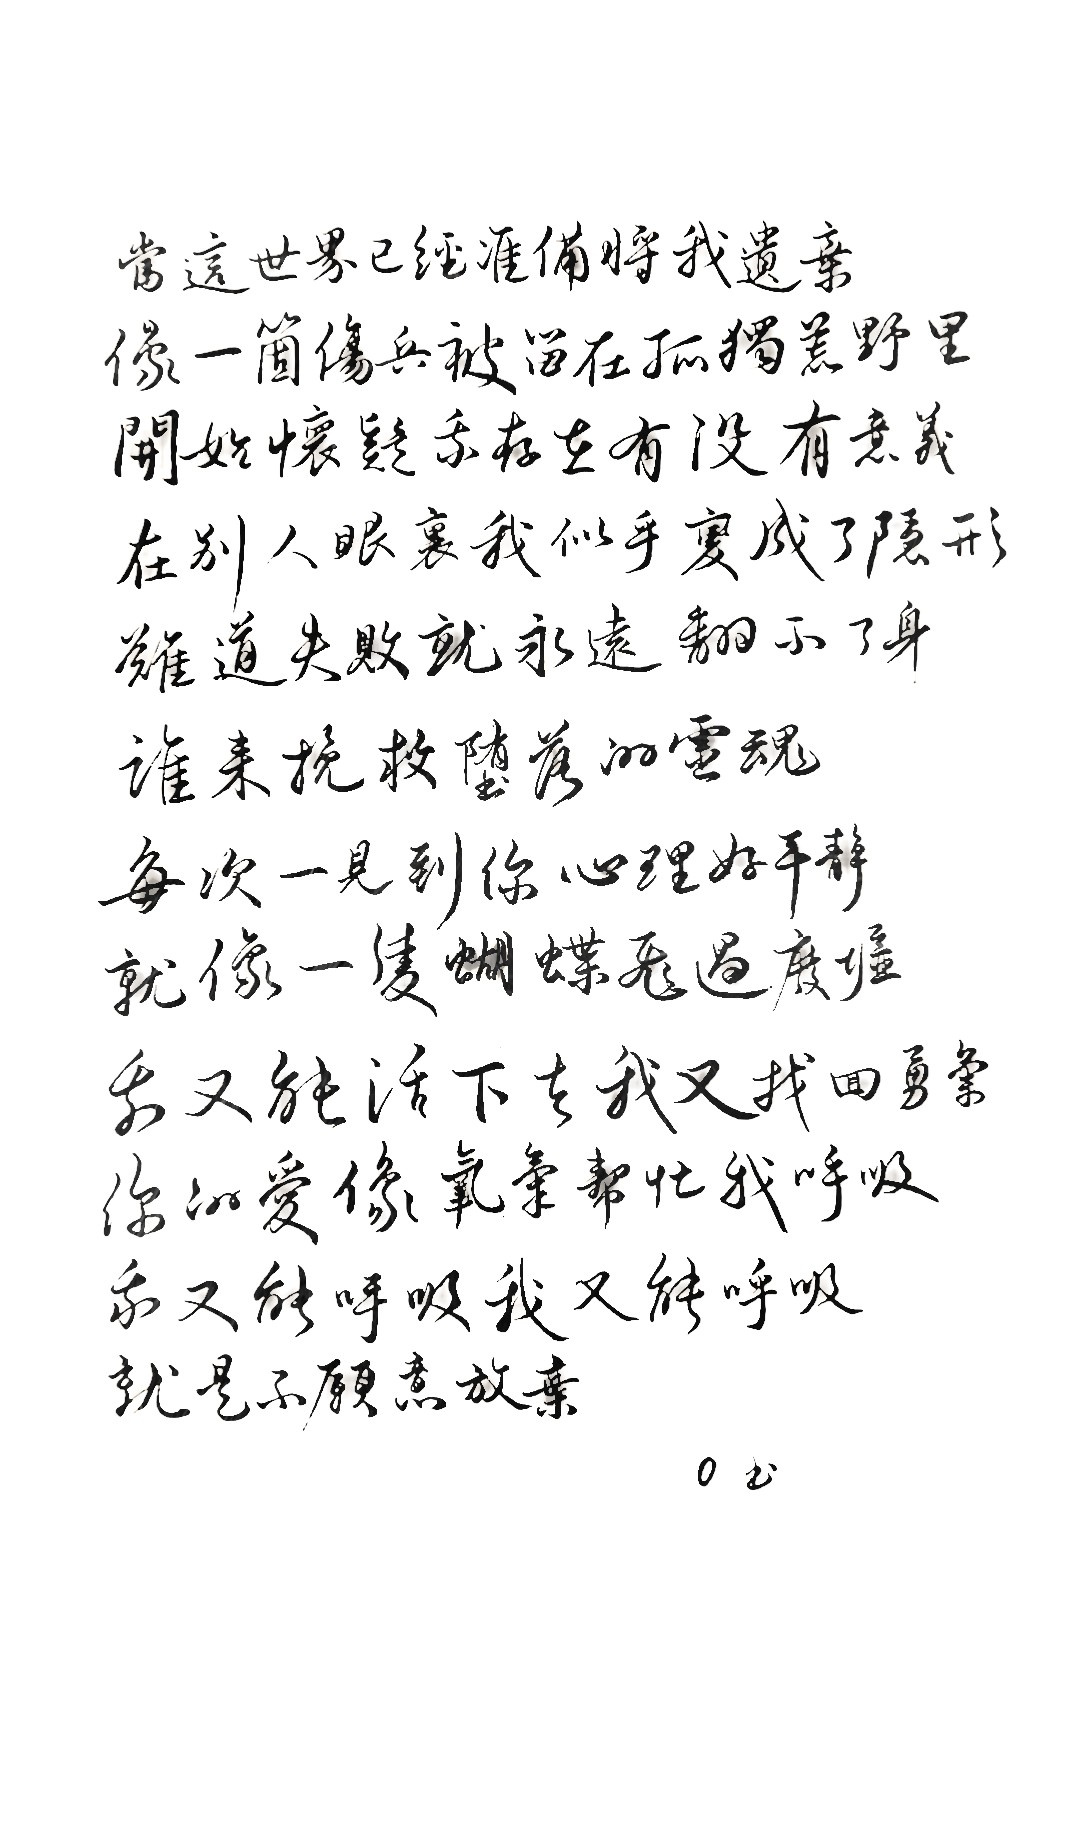 當這世界已經准備將我遺棄
像一箇傷兵被留在孤獨荒野里
開始懷疑我存在有没有意義
在别人眼裏我似乎變成了隱形
難道失敗就永遠翻不了身
誰来挽救墮落的靈魂
每次一見到你心理好平靜
就像一隻蝴蝶飛過廢墟
我又能活下去我又找回勇氣
你的愛像氧氣幫忙我呼吸
我又能呼吸我又能呼吸
就是不願意放棄
O 书